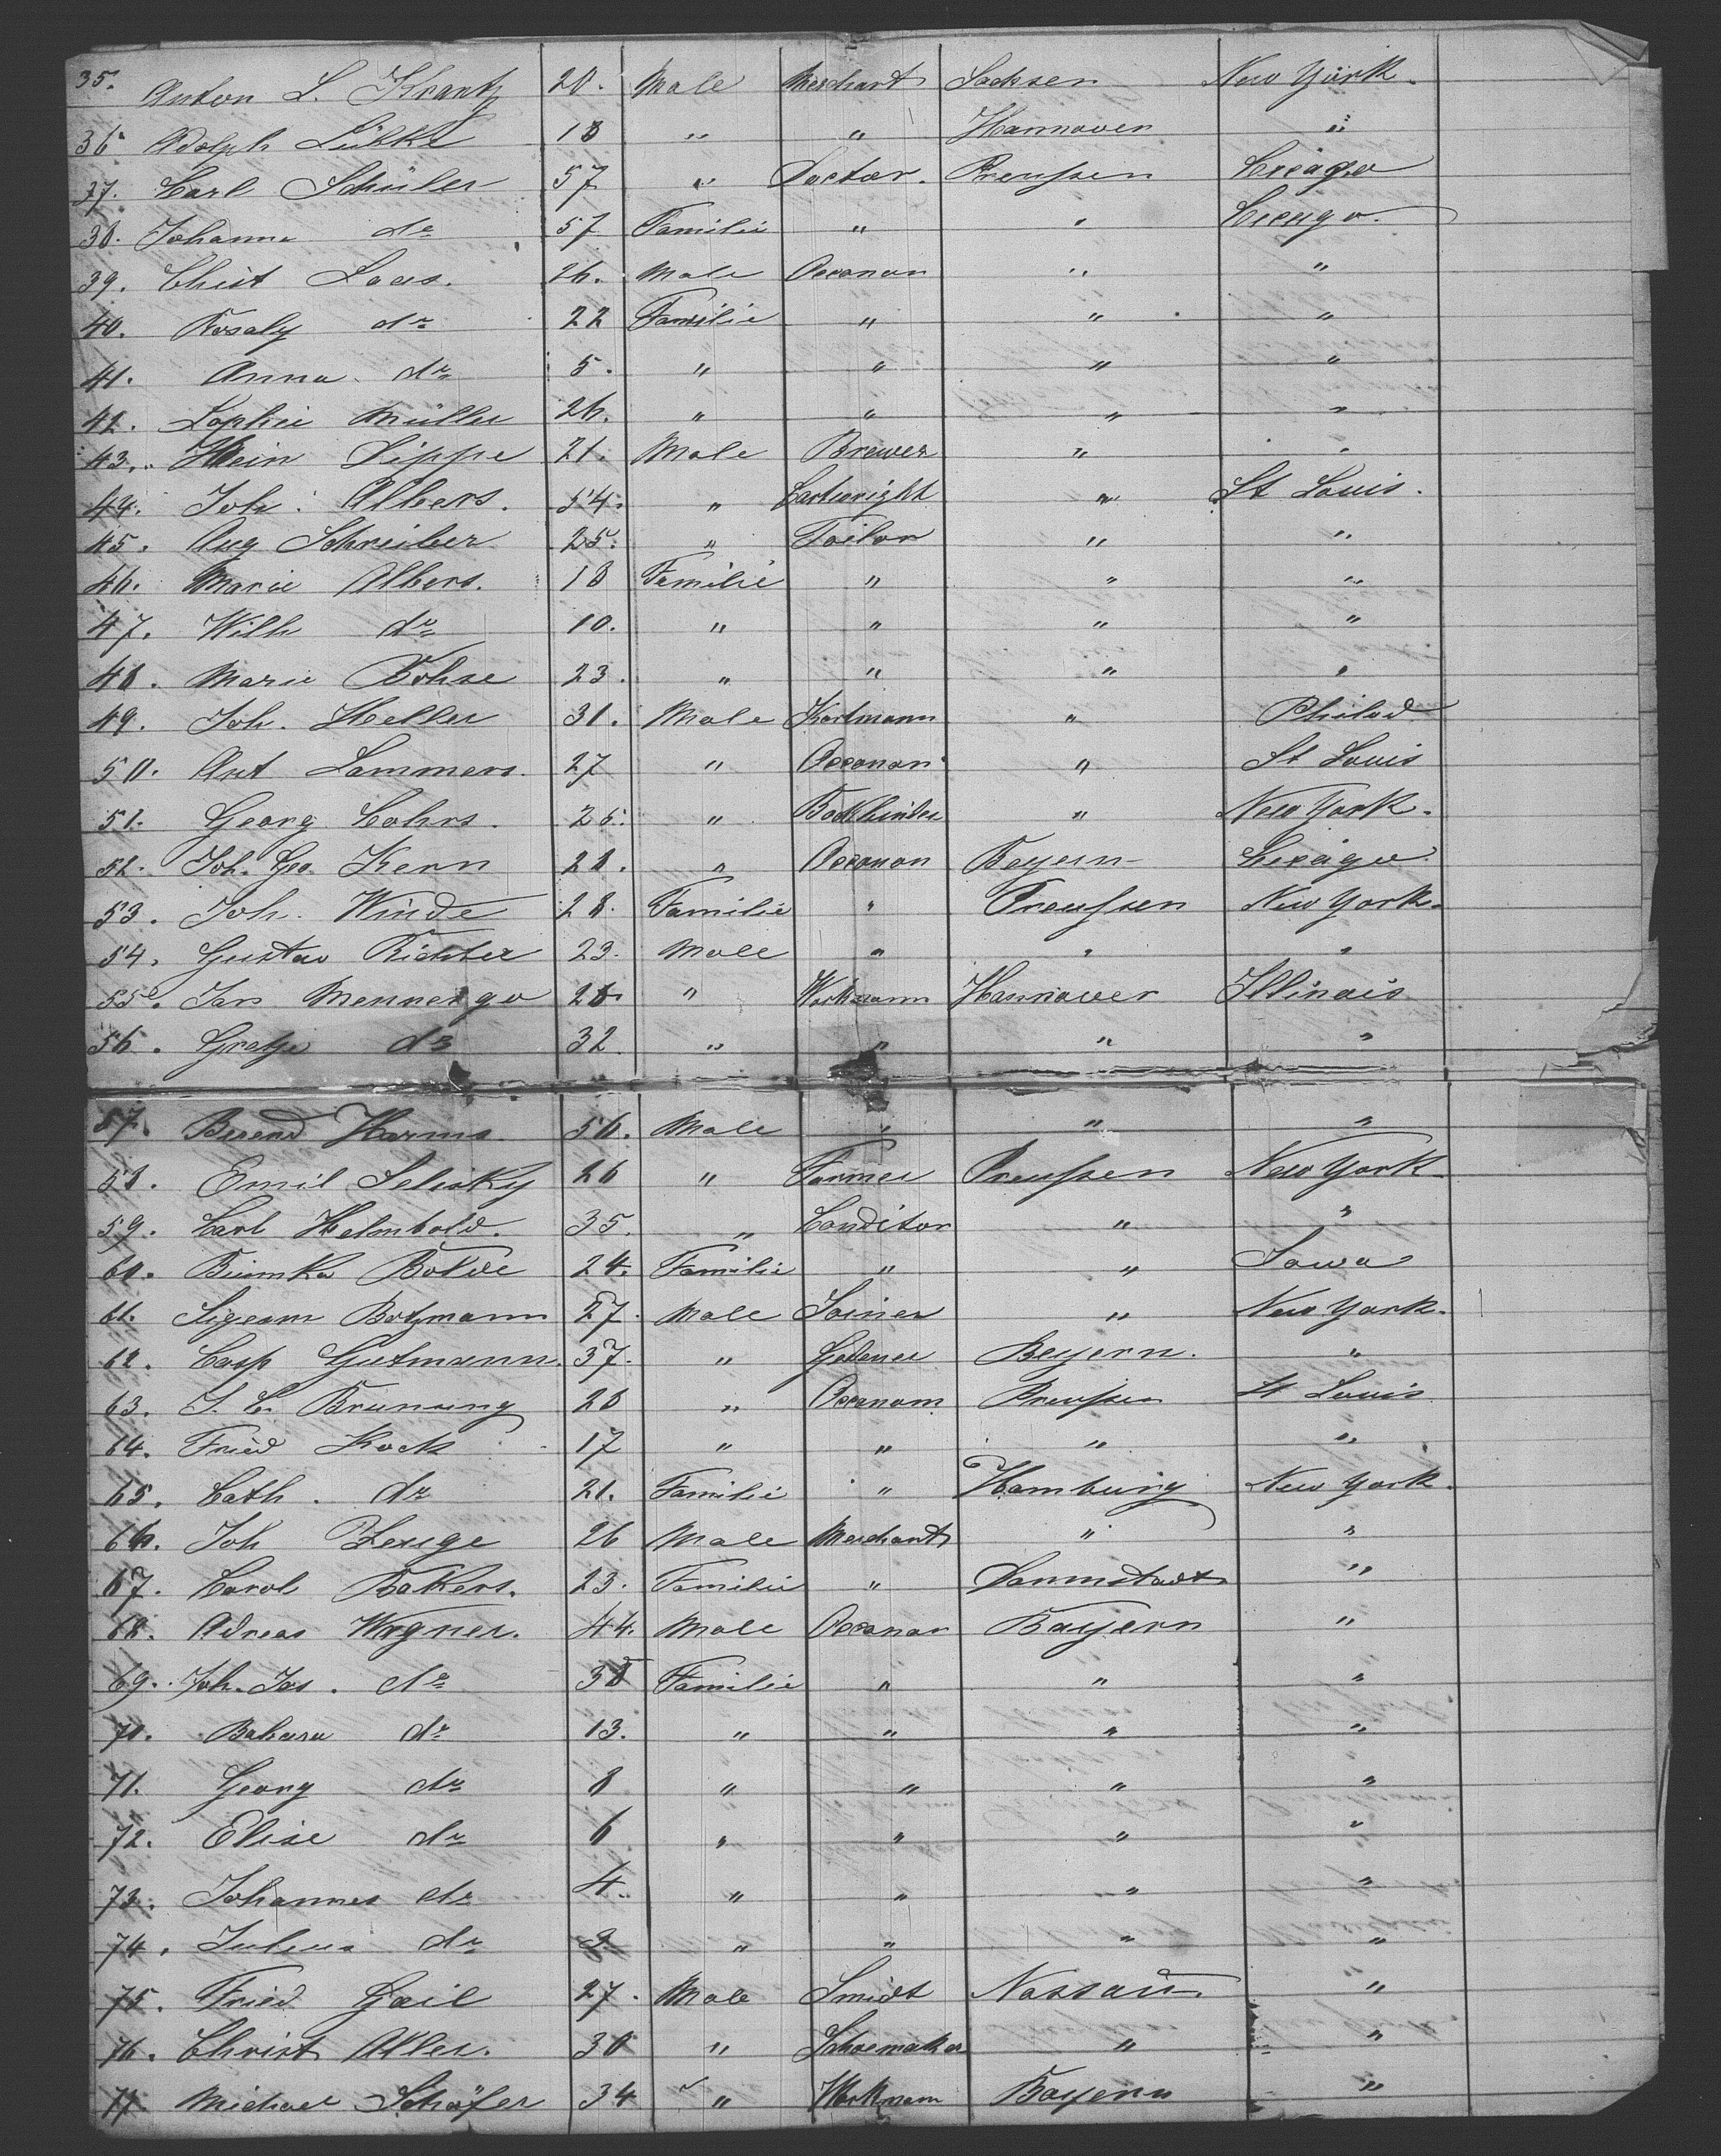 35. Anton L. Krantz 20. Male Merchant Sachsen New York.
36 Adolph Lübke 18 " " Hannover "
37. Carl Schüler 57 " Doctor. Preussen Cicago
38. Johanna do 57 Familie " " Cicago.
39. Christ Laas. 26. Male Oeconom " "
40. Rosaly do 22 Familie " " "
41. Anna do 5. " " " "
42. Sophie Müller 26. " " " "
43. Hein Lippe 21. Male Brewer " "
44. Joh. Albers. 54. " Cartwright " St Louis.
45. Aug Schreiber 25. " Tailor " "
46. Marie Albers. 18 Familie " " "
47. Wilh do 10. " " " "
48. Marie Bohse 23. " " " "
49. Joh. Heller 31. Male Kartmann " Philad
50. Ant Lammers. 27 " Oeconom " St Louis
51. Georg Cohrs. 25. " Bookbinder " New York.
52. Joh. Geo. Kern 28. " Oeconom Beyern Cicago
53. Joh. Winde 28. Familie " Preussen New York.
54. Gustav Richter 23. Male " " "
55. Jan Mennenga 28. " Workmann Hannover Illinois
56. Gretje do 32. " " " "
57. Berend Harms. 56. Male " " "
58. Emil Selisky 26 " Farmer Preussen New York.
59. Carl Helmbold. 35. " Conditor " "
60. Biemka Bolde 24. Familie " " Iowa
61. Sigesm Botzmann 27. Male Joiner " New York.
62. Casp Gutmann. 37. " Beyern. "
63. J. C. Brunning 28 " Oeconom Preussen St Louis
64. Fried Kock 17 " " " "
65. Cath. do 21. Familie " Hamburg New York.
66. Joh Zeuge 26 Male Merchant " "
67. Carol Bakers. 23. Familie " Darmstadt "
68. Adreas Wagner. 44. Male Oeconom Bayern "
69. Joh. Jos. do 38 Familie " " "
70. Babara do 13. " " " "
71. Georg do 8 " " " "
72. Elise do 6 " " " "
73. Johannes do 4. " " " "
74. Julius do " " " "
75. Fried Gail 27. Male Smidt Nassau "
76. Christ Aller. 30 " Schoemaker " "
77. Michael Schäfer 34 " Workmam Bayern "